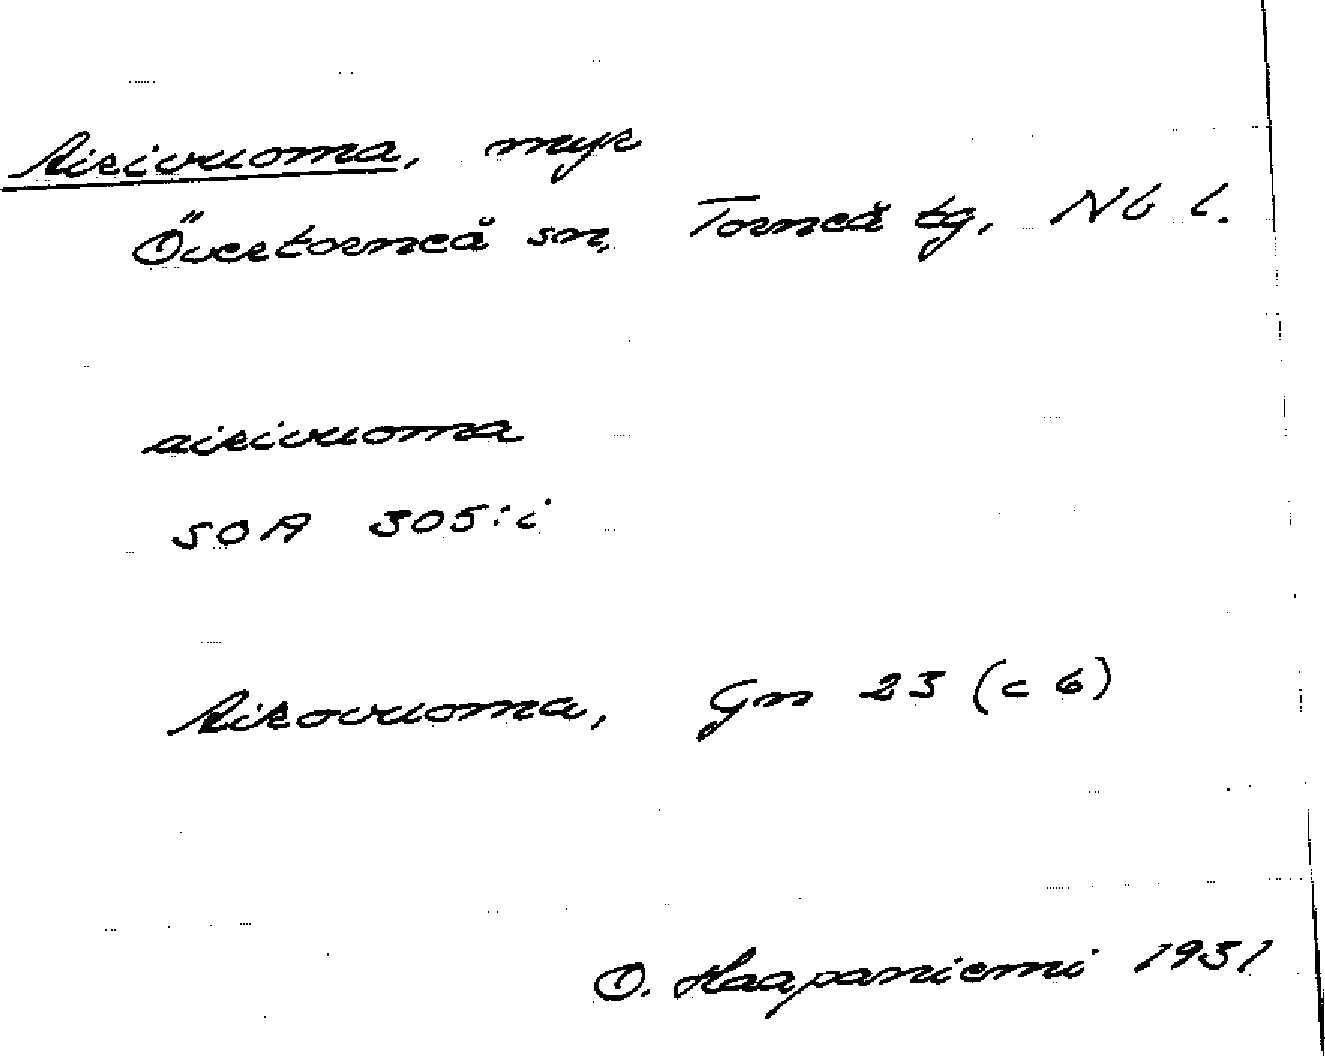 Airivuoma, myr
Övertorneå sn, Torneå tg, Nb l.
airivuoma
SOA 305:i
Airovuoma, Gm 23 (c 6)
O. Haapaniemi 1931